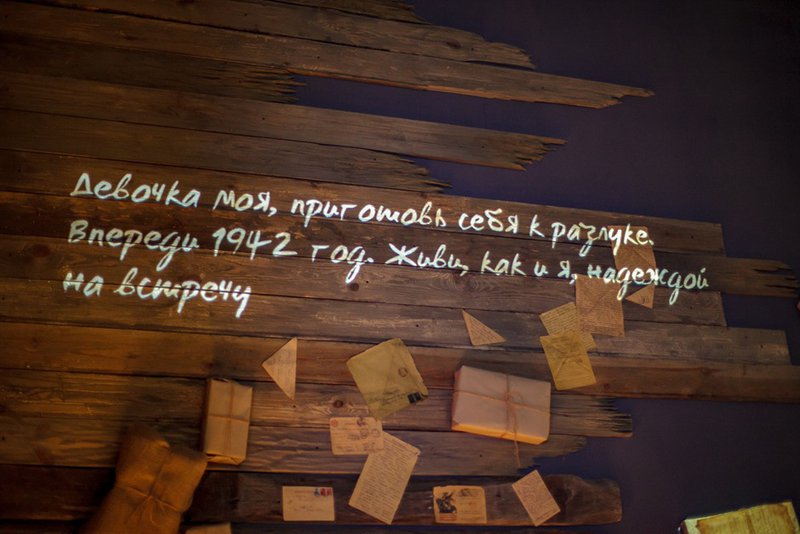 Девочка моя, приготовь себя к разлуке.
Впереди 1942 год. Живи, как и я, надеждой
на встречу